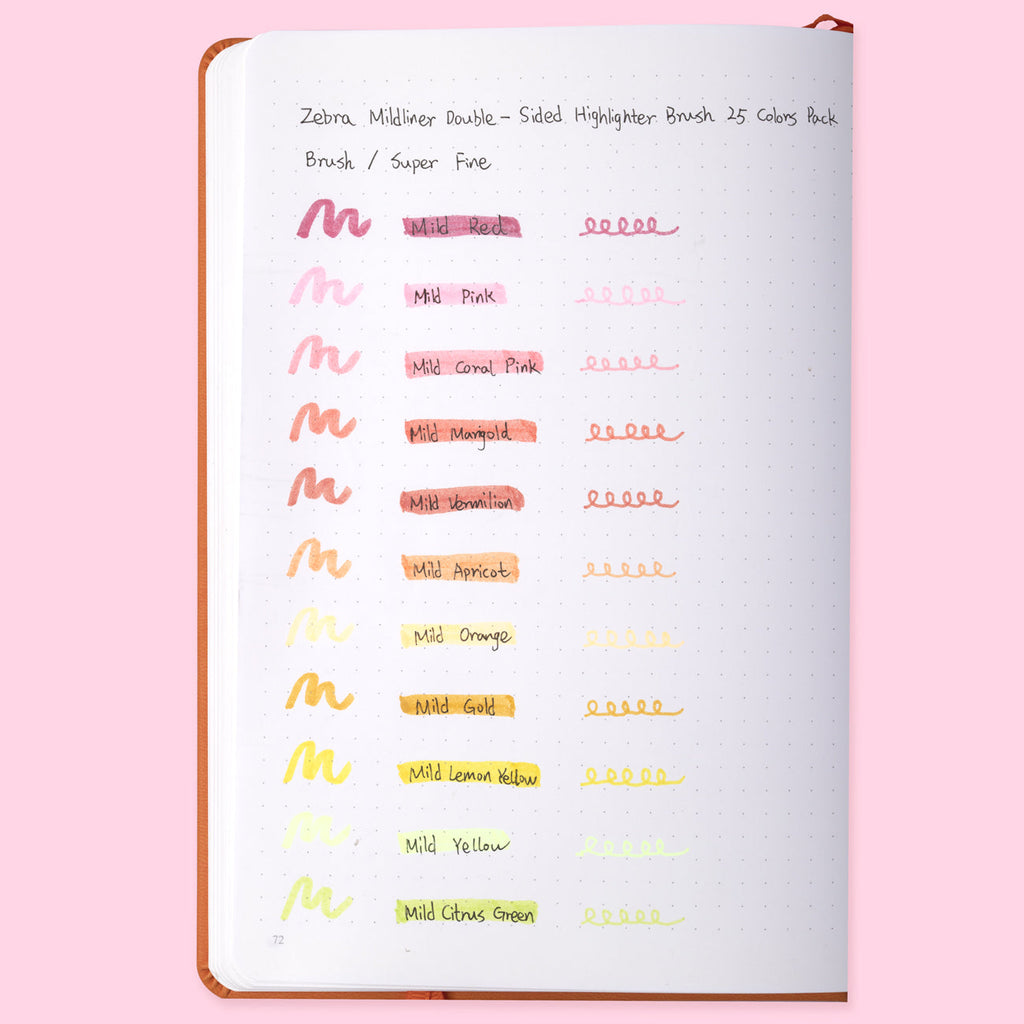 Zebra Mildliner Double - Sided Highlighter Brush 25 Colors Pack
Brush / Super Fine
Mild Red
Mild Pink
Mild Coral Pink
Mild Marigold
Mild Vermilion
Mild Apricot
Mild Orange
Mild Gold
Mild Lemon Yellow
Mild Yellow
Mild Citrus Green
72